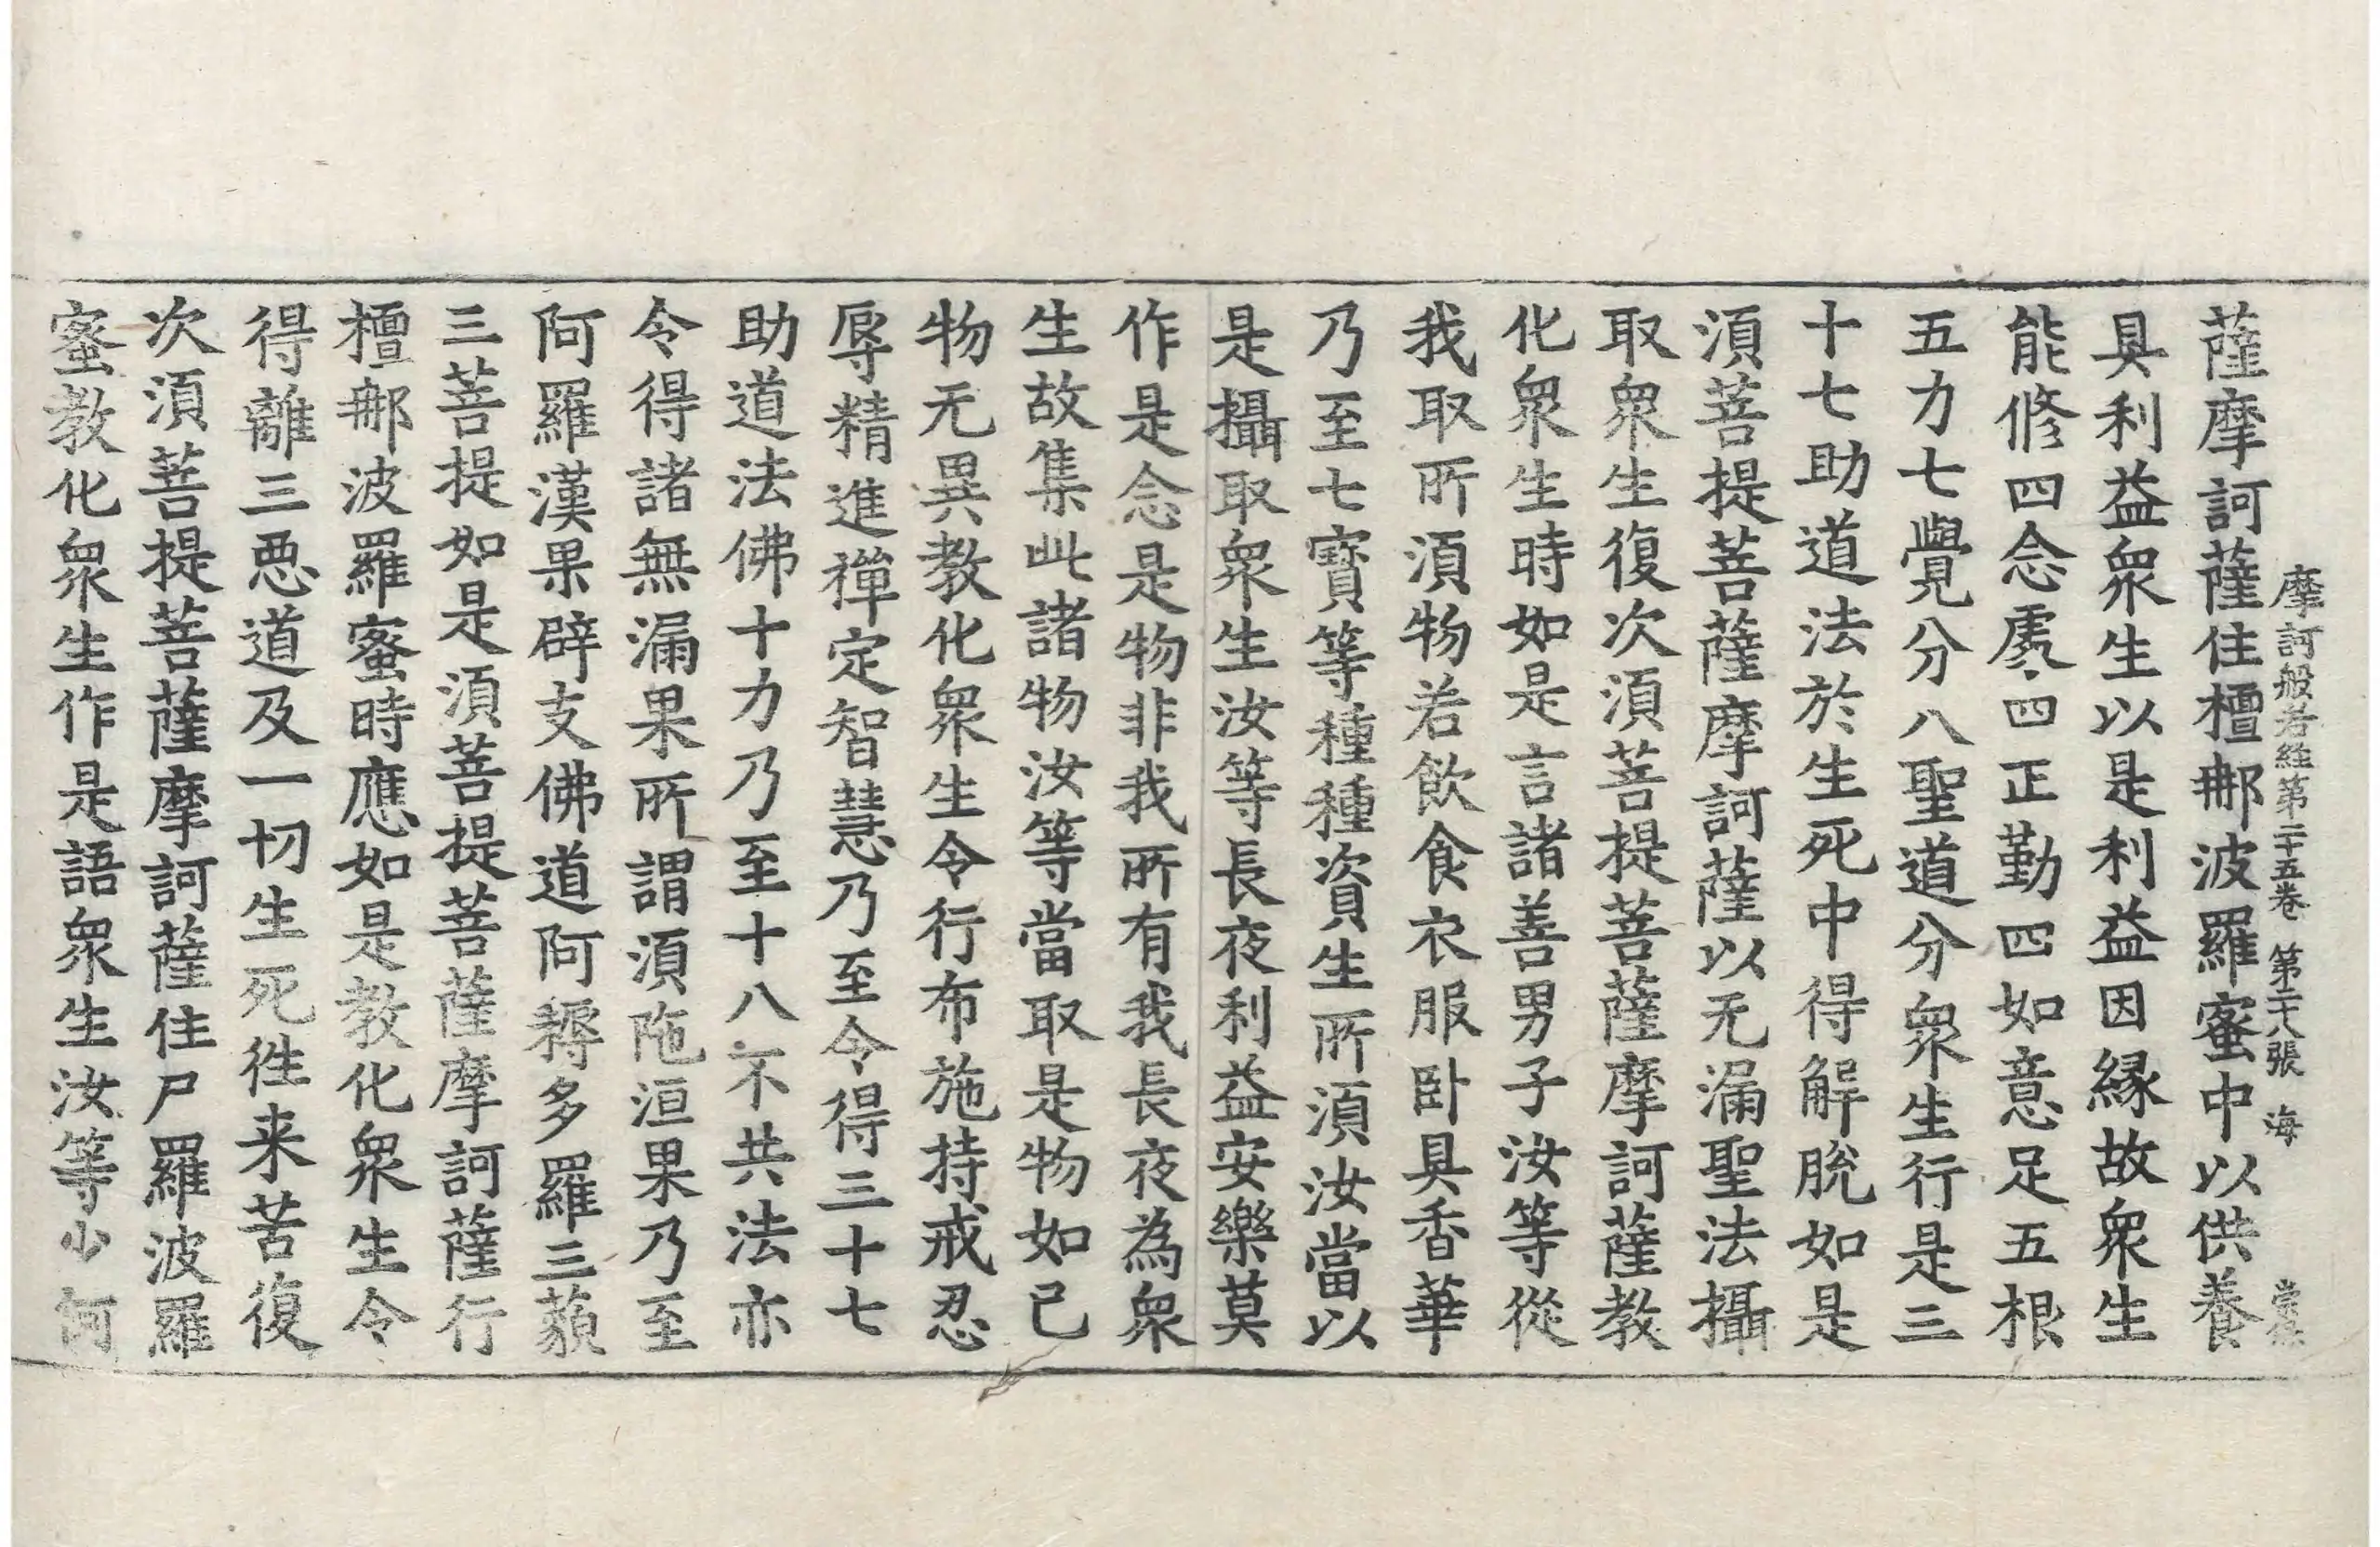 摩訶般若經第二十五卷 第二十八張 海
薩摩訶薩住檀那波羅蜜中以供養
具利益衆生以是利益因縁故衆生
能修四念處四正勤四如意足五根
五力七覺分八聖道分衆生行是三
十七助道法於生死中得解脫如是
湏菩提菩薩摩訶薩以无漏聖法攝
取衆生復次湏菩提菩薩摩訶薩教
化衆生時如是言諸善男子汝等從
我取所湏物若飲食衣服卧具香華
乃至七寶等種種資生所湏汝當以
是攝取衆生汝等長夜利益安樂莫
作是念是物非我所有我長夜為衆
生故集此諸物汝等當取是物如已
物无異教化衆生令行布施持戒忍
辱精進禪定智慧乃至令得三十七
助道法佛十力乃至十八不共法亦
令得諸無漏果所謂湏陁洹果乃至
阿羅漢果辟支佛道阿耨多羅三藐
三菩提如是湏菩提菩薩摩訶薩行
檀那波羅蜜時應如是教化衆生令
得離三惡道及一切生死徃来苦復
次湏菩提菩薩摩訶薩住尸羅波羅
蜜教化衆生作是語衆生汝等少何